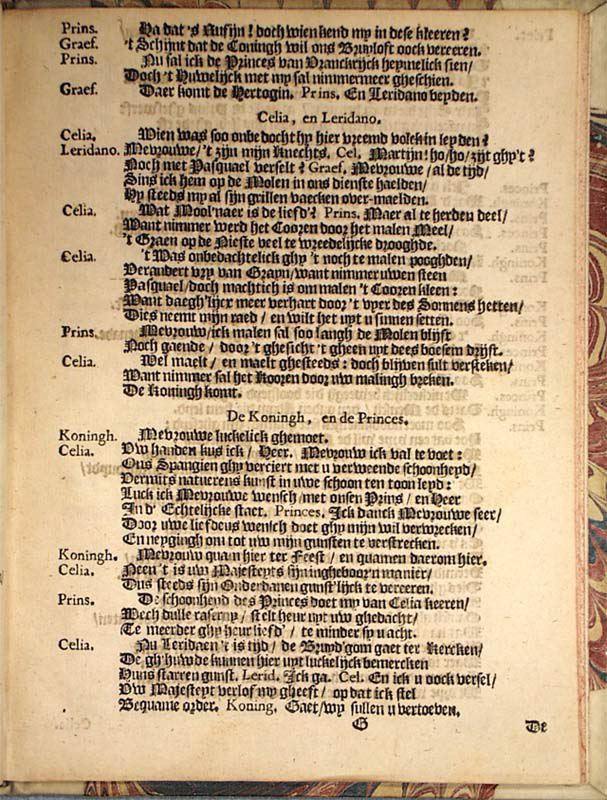 Prins. Ha dat 's Ausijn! doch wien kend my in dese kleeren?
Graef. 't Schijnt dat de Coningh wil ons Bruyloft oock vereeren.
Prins. Nu sal ick de Princes van Vranckrijck heymelick sien/
Doch 't Huwelijck met my sal nimmermeer gheschien.
Graef. Daer komt de Hertogin. Prins. En Leridano beyden.
Celia, en Leridano.
Celia. Wien was soo onbedocht hy hier vreemd volck in leyden?
Leridano. Mevrouwe/ 't zijn mijn Knechts. Cel. Martijn! ho/ho/ zijt ghy't?
Noch met Pasquael verselt? Graef. Mevrouwe/ al de tijd/
Sins ick hem op de Molen in ons dienste haelden/
Hy steeds my al sijn grillen vaecken over-maelden.
Celia. Wat Mool'naer is de liefd'? Prins. Maer al te herden deel/
Want nimmer werd het Cooren door het malen Meel/
't Graen op de Nieste veel te wreedelijcke drooghde.
Celia. 't Was onbedachtelick ghy 't noch te malen pooghden/
Beraubert vry van Grayn/ want nimmer uwen steen
Pasquael/ doch machtich is om malen 't Cooren kleen:
Want daegh'lijcx meer verhart door 't vyer des Sonnens hetten/
Dies neemt mijn raed/ en wilt het uyt u sinnen setten.
Prins. Mevrouw/ ick malen sal soo langh de Molen blijft
Noch gaende/ door 't ghesicht 't gheen uyt dees boesem drijft.
Celia. Wel maelt/ en maelt ghesteeds: doch blijven sult versteken/
Want nimmer sal het Kooren door uw malingh breken.
De Koningh komt.
De Koningh, en de Princes.
Koningh. Mevrouwe luckelick ghemoet.
Celia. Uw handen kus ick/ Heer. Mevrouw ick val te voet:
Ons Spangien ghy verciert met u verweende schoonheyd/
Vermits natuerens kunst in uwe schoon ten toon leyd:
Luck ick Mevrouwe wensch/ met onsen Prins/ en Heer
In d' Echtelijcke staet. Princes. Ick danck Mevrouwe seer/
Door uwe liefdens wensch doet ghy mijn wil verwrecken/
En neygingh om tot uw mijn gunsten te verstrecken.
Koningh. Mevrouw quam hier ter Feest/ en quamen daerom hier.
Celia. Neen 't is uw Majesteyts sijn ingheboor'n manier/
Ons steeds sijn Onderdanen gunst'lijck te vereeren.
Prins. De schoonheyd des Princes doet my van Celia keeren/
Wech dulle raserny/ stelt heur uyt uw ghedacht/
Te meerder ghy heur liefd'/ te minder sp u acht.
Celia. Nu Leridaen 't is tijd/ de Bruyd'gom gaet ter Kercken/
De gh'huwde kunnen hier uyt luckelijck bemercken
Huns starren gunst. Lerid. Ick ga. Cel. En ick u oock versel/
Uw Majesteyt verlof my gheeft/ op dat ick stel
Bequame order. Koning. Gaet/ wy sullen u vertoeven.
G De